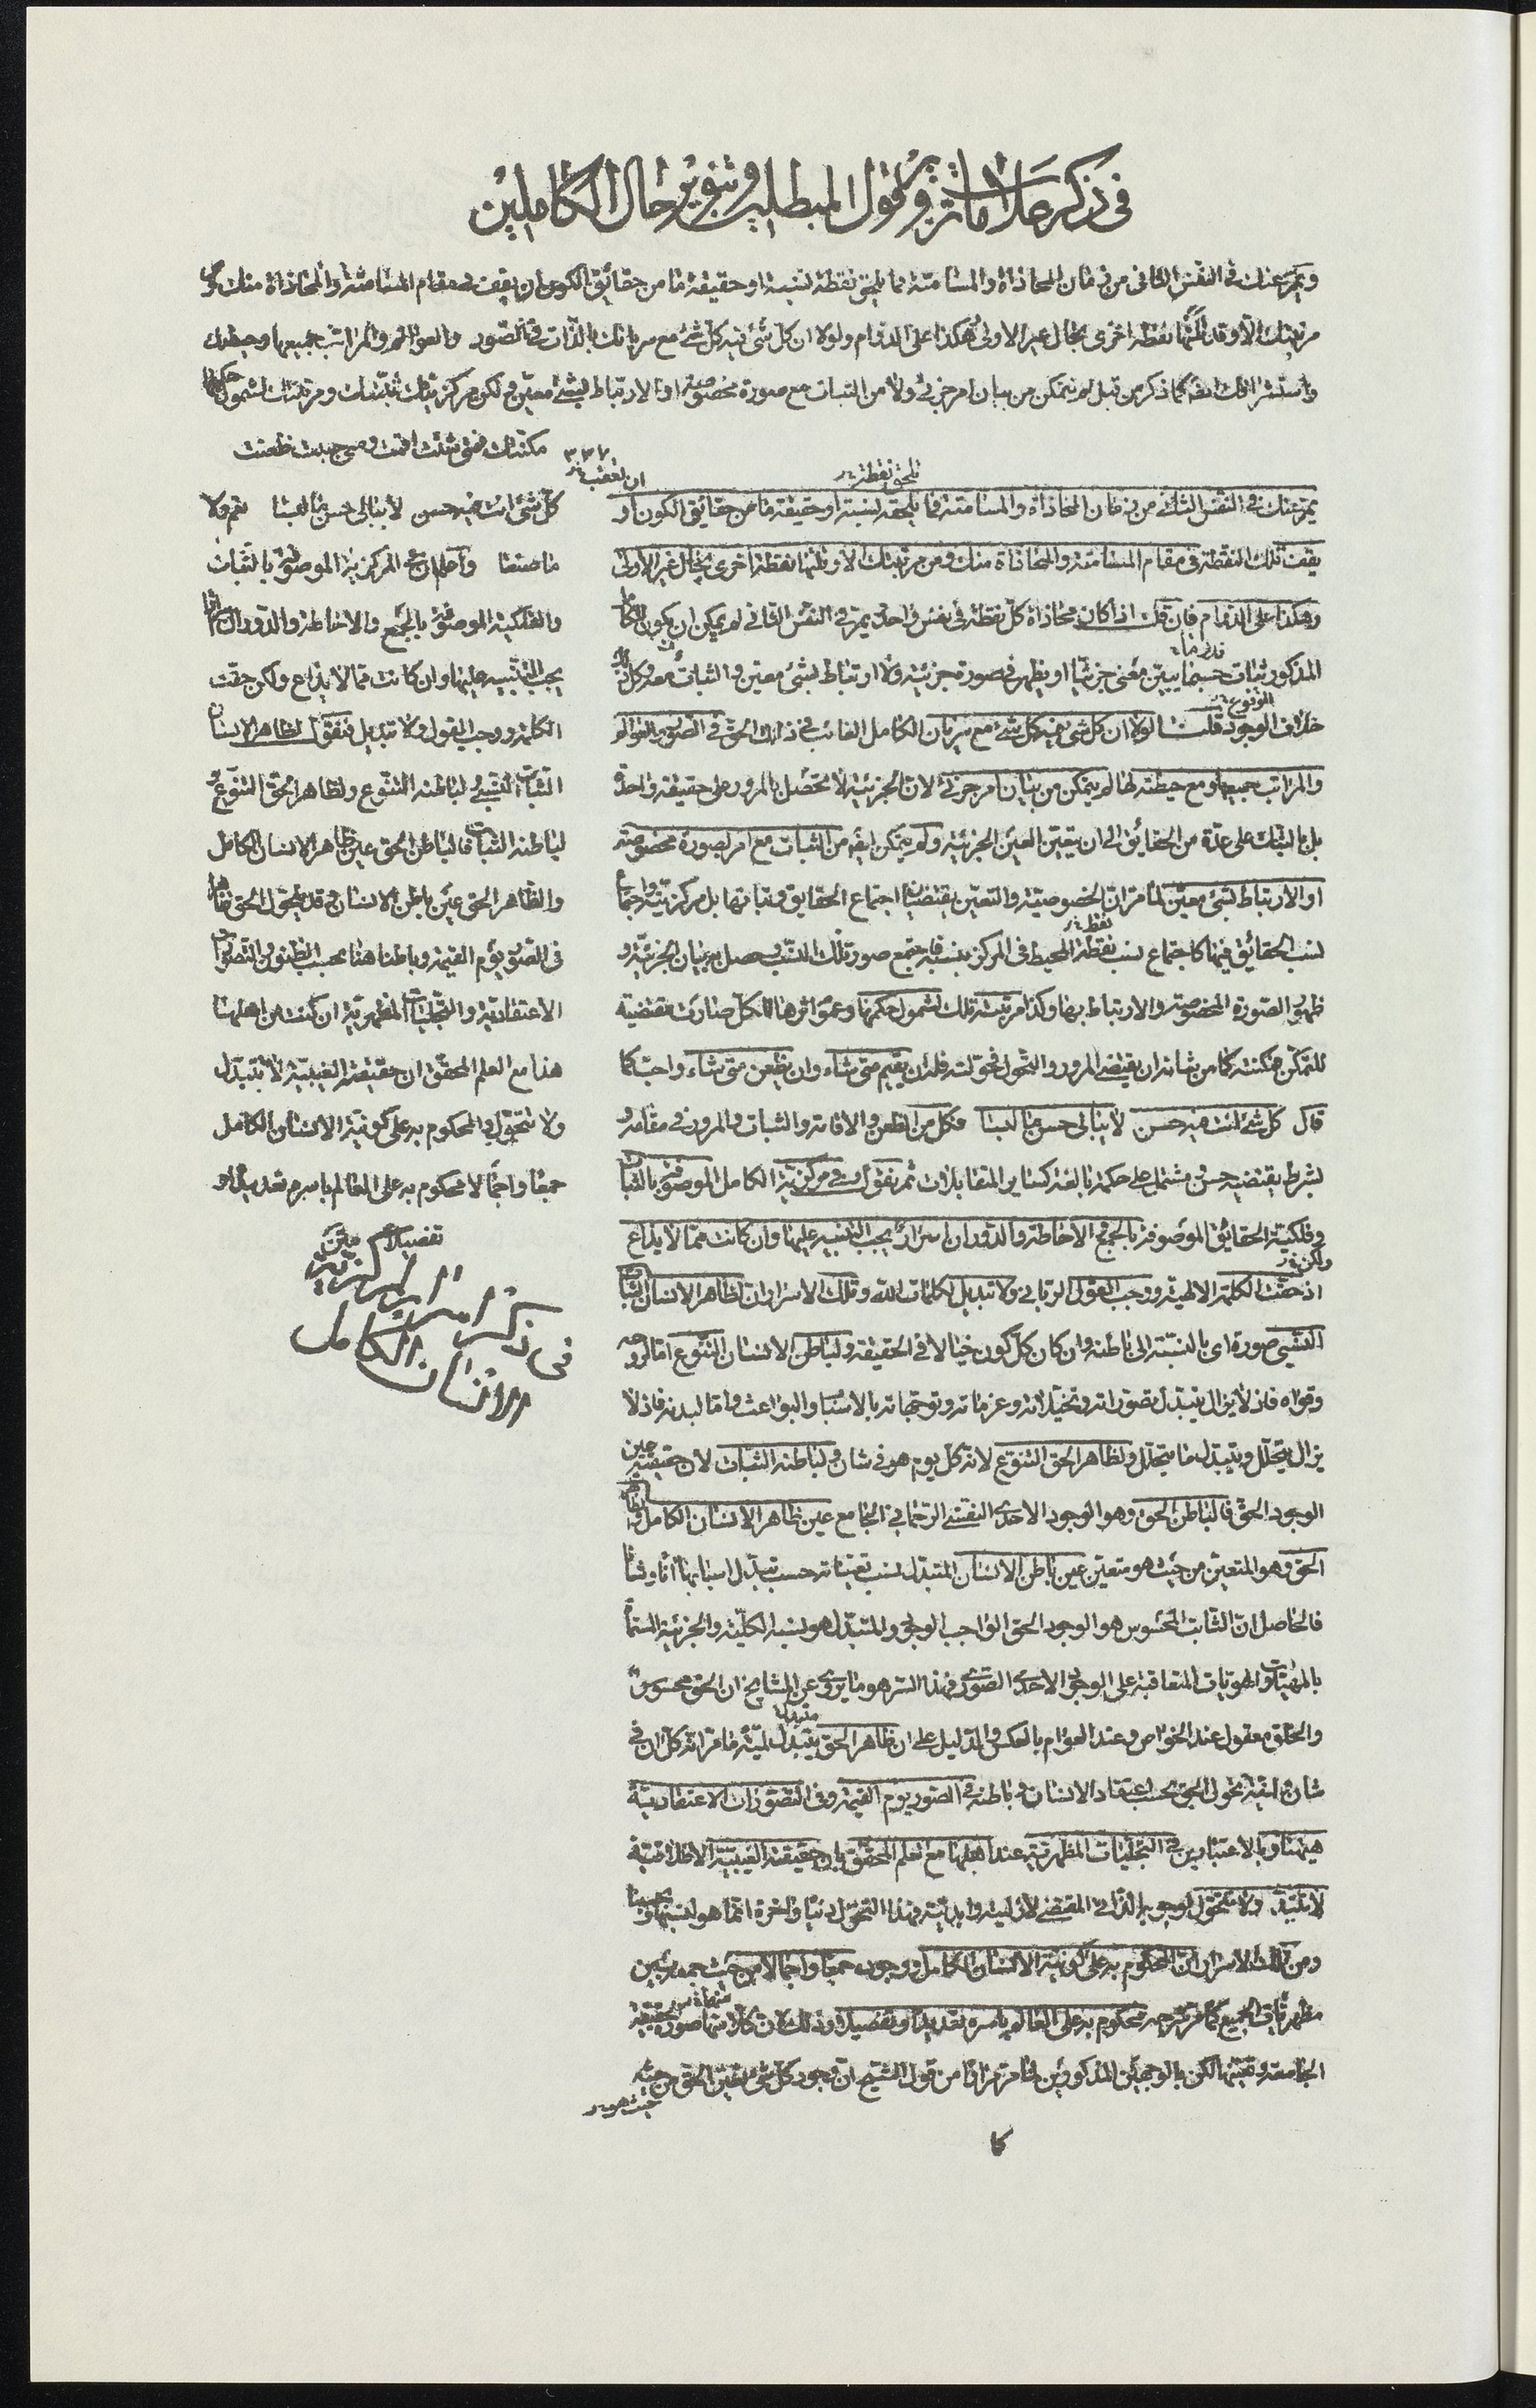 في ذكر علامات وقول المبطلين وتنوير حال الكاملين
ويمر عنك في النفس الثاني من زمان المحاذاة والمسامتة فما يلحق نقطة نسبة او حقيقة ما من حقائق الكون ان يقف في مقام المسامتة والمحاذاة منك ومن
مرتبتك الا وقد تلتها نقطة اخرى بحال غير الاولى هكذا على الدوام ولولا ان كل شئ فيه كل شئ مع سريانك بالذات في الصور والعوالم والمراتب جميعها وحيطتك
واستشرافك كما ذكر من قبل لم يتمكن من بيان امر جزئي ولا من الثبات مع صورة مخصوصة او الارتباط بشئ معين لكن مركزيتك ثبتتك ومرتبتك لشمول حكمها
مكنتك فمتى شئت اقمت ومتى احببت ظعنت
كل شئ انت فيه حسن لا يبالي حسن ما لبسا نعم ولا
ما صنعا واعلم ان في المركزية الموصوفة بالثبات
والفلكية الموصوفة بالجمع والاحاطة والدوران اسرارا
يجب التنبيه عليها وان كانت مما لا يذاع ولكن حقت
الكلمة ووجب القول ولا تبديل فنقول لظاهر الانسان
الثبات النسبي لباطنه التنوع ولظاهر الحق التنوع
لباطنه الثبات فالباطن الحق عين ظاهر الانسان الكامل
والظاهر الحق عين باطن الانسان وقد يتحول الحق ظاهرا
في الصور يوم القيمة وباطنا هنا بحسب الظنون والتصورات
الاعتقادية والتجليات المظهرية ان كنت من اهلها
هذا مع العلم المحقق ان حقيقته الغيبية لا تتبدل
ولا تتحول والمحكوم به على كونية الانسان الكامل
جمعا واجمالا محكوم به على العالم باسره تعديدا و
تفصيلا متن
في ذكر اسرار مركزية
الانسان الكامل
٣٣٧
ان تعقب
تلحق نقطة
يمر عنك في النفس الثاني من زمان المحاذاة والمسامتة فما يلحقه نسبة او حقيقة ما من حقائق الكون او
يقف تلك النقطة في مقام المسامتة والمحاذاة منك ومن مرتبتك الا وتلتها نقطة اخرى بحال غير الاولى
وهكذا على الدوام فان قلت اذا كان محاذاة كل نقطة في نفس واحد يمر في النفس الثاني لم يمكن ان يكون للكامل
المذكور ثبات حسبما يبين معنى جزئيا او يظهر في صورة جزئية ولا ارتباط بشئ معين والثبات معه وكل ذلك
خلاف الوجود قلت لولا ان كل شئ فيه كل شئ مع سريان الكامل الفائت في ذات الحق في الصور والعوالم
والمراتب جميعها ومع حيطته لها لم يتمكن من بيان امر جزئي لان الجزئية لا تحصل بالمرور على حقيقة واحدة
بل بالثبات على عدة من الحقائق الى ان يتعين العين الجزئية ولم يتمكن ايضا من الثبات مع امر بصورة مخصوصة
او الارتباط بشئ معين لما مر ان الخصوصية والتعين يقتضيان اجتماع الحقايق وثباتها بل مركزيته واجتماع
نسب الحقائق فيها كاجتماع نسب نقطة المحيط في المركز بنسبة فاجتمع صورة تلك النسب وحصل به بيان الجزئية و
ظهور الصورة المخصوصة والارتباط بها وكذا مرتبته تلك لشمول حكمها وعموم اثرها للكل صارت مقتضية
للتمكن فمكنته كما من شانه ان يقتضي المرور والتحول فحولته فله ان يقيم متى شاء وان يظعن متى شاء واحب كما
قال كل شئ انت فيه حسن لا يبالي حسن ما لبسا فكل من الظعن والاقامة والثبات والمرور في مقامه و
بشرط يقتضيه حسن ومشتمل على حكمة بالغة كساير المتقابلات ثم نقول وفي مركزية الكامل الموصوفة بالثبات
وفلكية الحقايق الموصوفة بالجمع والاحاطة والدوران اسرار يجب التنبيه عليها وان كانت مما لا يذاع
اذ حقت الكلمة الالهية ووجب القول الرباني ولا تبديل لكلمات الله وتلك الاسرار ان لظاهر الانسان الثبات
النسبي صورة اي بالنسبة الى باطنه وان كان كل كون خيالا في الحقيقة ولباطن الانسان التنوع اما لروحه
وقواه فاذ لا يزال يتبدل تصوراته وتخيلاته وعزماته وتوجهاته بالاسباب والبواعث واما لبدنه فاذ لا
يزال يتحلل ويتبدل ما يتحلل ولظاهر الحق التنوع لانه كل يوم هو في شان ولباطنه الثبات لان حقيقته عين
الوجود الحق فالباطن الحق وهو الوجود الاحدي النفسي الرحماني الجامع عين ظاهر الانسان الكامل وظاهر
الحق وهو المتعين من حيث هو متعين عين باطن الانسان المتبدل نسب تعيناته حسب تبدل اسبابها آنا وشانا
فالحاصل ان الثابت المحسوس هو الوجود الحق الواجب الوجود والمتبدل هو نسبه الكلية والجزئية المسماة
بالمهيات والهويات المتعاقبة على الوجود الاحدي الصوري وهذا السر هو ما يروى عن المشايخ ان الحق محسوس
والخلق معقول عند الخواص وعند العوام بالعكس والدليل على ان ظاهر الحق يتبدل نسبته ما مر انه كل ان في
شان ايضا يتحول الحق بحسب اعتقاد الانسان وباطنه في الصور يوم القيمة وفي التصورات الاعتقادية
هيهنا وبالاعتبارين في التجليات المظهرية عند اهلها مع العلم المحقق بان حقيقته الغيبية الاطلاقية
لا تتبدل ولا تتحول لوجوبه الذاتي المقتضي لازليته وابديته وهذا التحول دنيا واخرة انما هو لنسبتها و
ومن تلك الاسرار ان المحكوم به على كونية الانسان الكامل ووجوده جمعا واجمالا من حيث جمعه بين
مظهريات الجميع كما مر شرحه محكوم به على العالم باسره تعديدا وتفصيلا وذلك لان كلا منهما صورة الحقيقة
الجامعة وتعينها لكن بالوجهين المذكورين لما مر مرارا من قول الشيخ ان وجود كل شئ تعين الحق من حيثه
حيث هو
كا